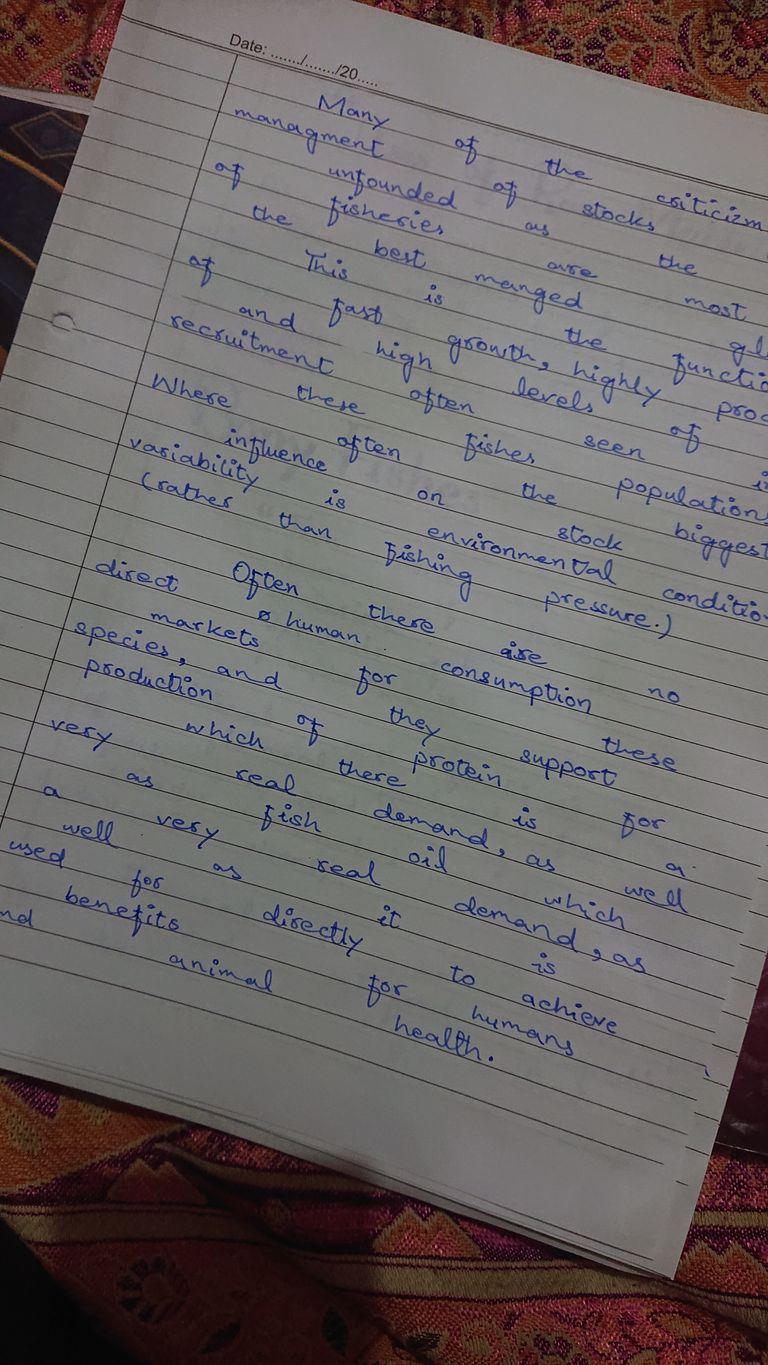 Many of the criticizm
managment of stocks
unfounded as the
of fisheries are most
the best manged gl
This is the functio
of fast growth, highly proc
and high levels of
recruitment often seen in
Where these fishes populations
often the biggest
influence on stock
variability is environmental conditio
(rather than fishing pressure.)
Often there are no
direct human consumption
markets for these
species, and they support
production of protein for
which there is a
very real demand, as well
as fish oil which
a very real demand, as
well as it is
used for directly to achieve
benefits for humans
nd animal health.
Date: ......./......./20.....